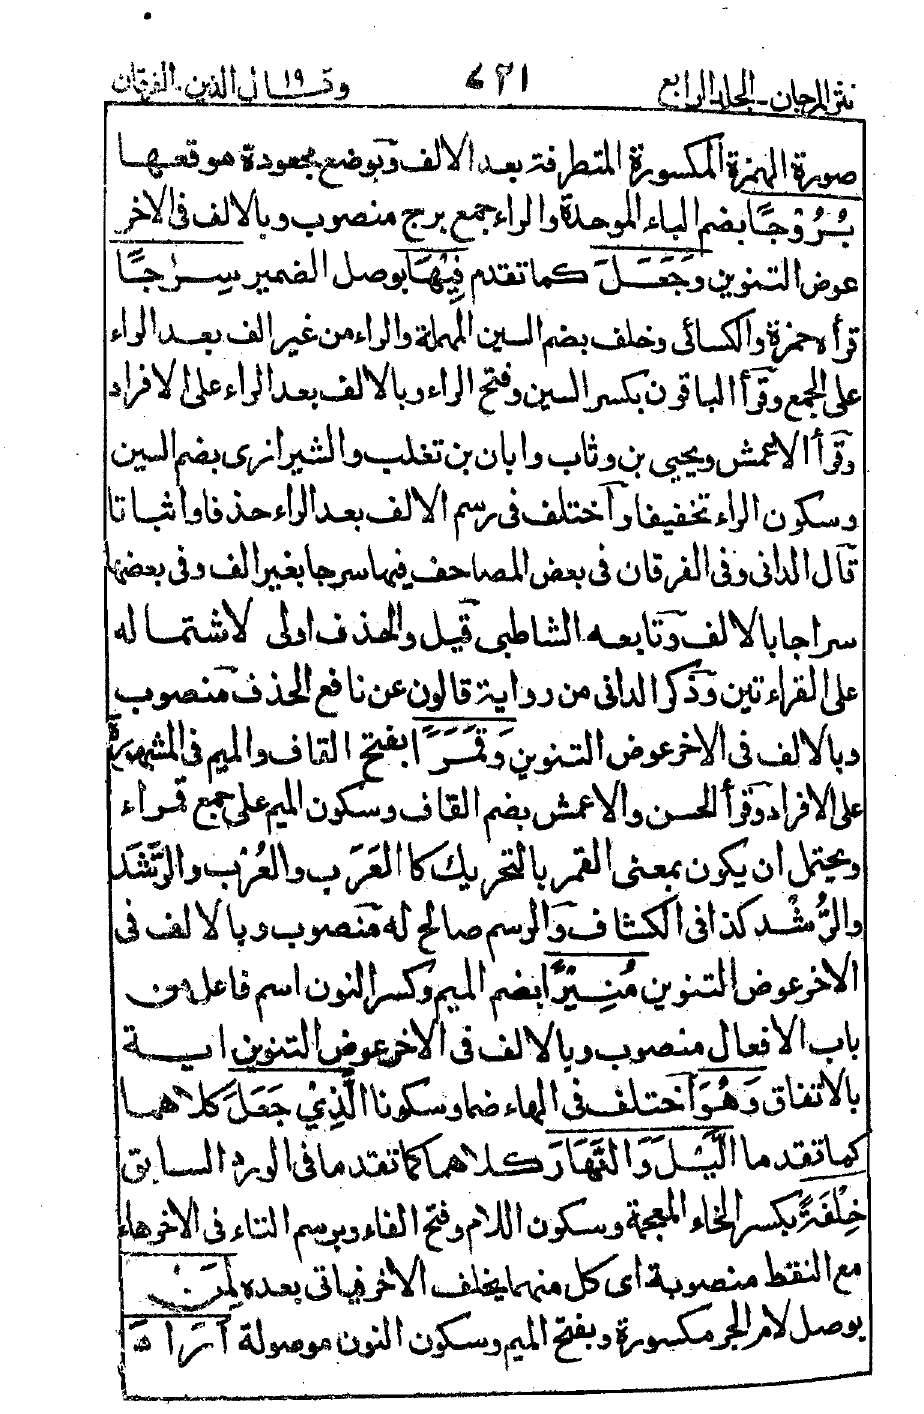 نثر المرجان ـ الجلد الرابع ٤٢١ وقال الذين ١٩ ـ الفرقان
صورة الهمزة المكسورة المتطرفة بعد الالف وتوضع مجعودة هو قعها
بُرُوْجًا بضم الباء الموحدة والراء جمع برج منصوب وبالالف فى الاخر
عوض التنوين وَجَعَلَ كما تقدم فِيْهَا بوصل الضمير سِرٰجًا
قرأه حمزة والكسائى وخلف بضم السين المهملة والراء من غير الف بعد الراء
على الجمع وقرأ الباقون بكسر السين وفتح الراء وبالالف بعد الراء على الافراد
وقرأ الاعمش ويحيى بن وثاب وابان بن تغلب والشيرازى بضم السين
وسكون الراء تخفيفا واختلف فى رسم الالف بعد الراء حذفا واثباتا
قال الدانى وفى الفرقان فى بعض المصاحف فيها سرجا بغير الف وفى بعضها
سراجا بالالف وتابعه الشاطبى قيل والحذف اولى لاشتماله
على القراءتين وذكر الدانى من رواية قالون عن نافع الحذف منصوب
وبالالف فى الاخر عوض التنوين وَقَمَرًا بفتح القاف والميم فى المشهورة
على الافراد وقرأ الحسن والاعمش بضم القاف وسكون الميم على جمع قراء
ويحتمل ان يكون بمعنى القمر بالتحريك كالعَرَب والعُرْب والرَّشَد
والرُّشْد كذا فى الكشاف والرسم صالح له منصوب وبالالف فى
الاخر عوض التنوين مُنِيْرًا بضم الميم وكسر النون اسم فاعل من
باب الافعال منصوب وبالالف فى الاخر عوض التنوين اية
بالاتفاق وَهُوَ اختلف فى الهاء ضما وسكونا الَّذِيْ جَعَلَ كلاهما
كما تقدما الَّيْلَ وَالنَّهَارَ كلاهما كما تقدما فى الورد السابق
خِلْفَةً بكسر الخاء المعجمة وسكون اللام وفتح الفاء وبرسم التاء فى الاخر هاء
مع النقط منصوبة اى كل منهما يخلف الاخر فياتى بعده لِمَنْ
بوصل لام الجر مكسورة وبفتح الميم وسكون النون موصولة اَرَادَ